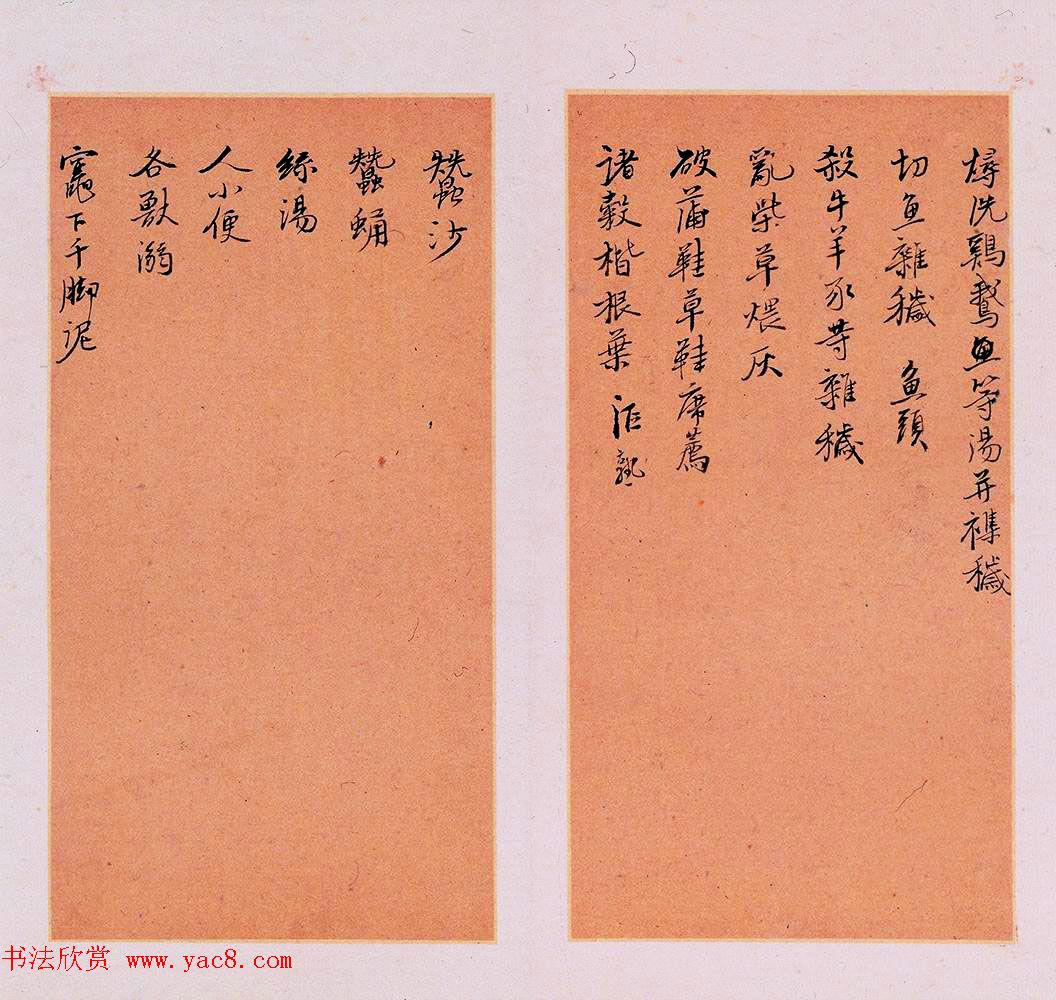 燖洗鷄鵞魚等湯并襍穢
切魚雜穢 魚頭
殺牛羊豕等雜穢
亂柴草煨灰
破蒲鞋草鞋席薦
諸穀楷根葉 漚熟
蠶沙
蠶蛹
絲湯
人小便
各獸溺
竈下千脚泥
书法欣赏 www.yac8.com